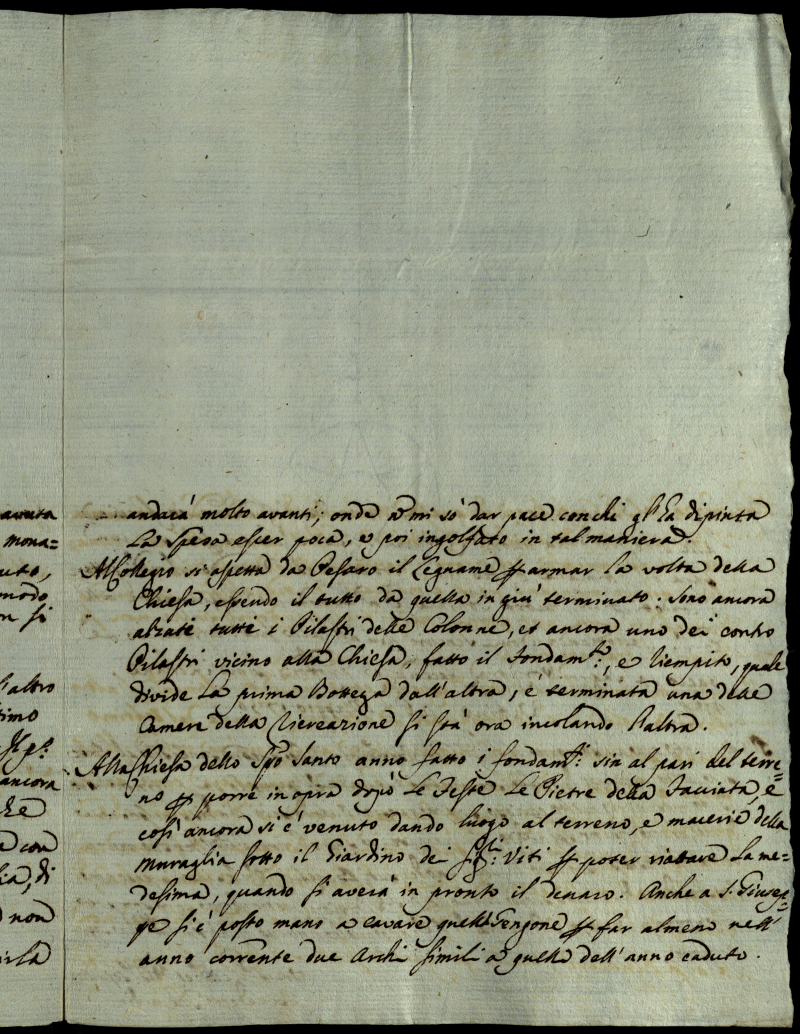 avuta
mona=
uto,
modo
n si
l'altro
timo
ancora
che
a con
lia, di
non
irla
andarà molto avanti; onde nõ mi sò dar pace con chi gl'la dipinta
la spesa esser poca, e poi ingolfato in tal maniera.
Al Collegio si aspetta da Pesaro il legname ꝑ armar la volta della
Chiesa, essendo il tutto da quella in giù terminato. Sono ancora
alzate tutte i Pilastri delle Colonne, et ancora uno dei contro
Pilastri vicino alla Chiesa, fatto il fondam.to, e riempito, quale
divide la prima Bottega dall'altra, è terminata una delle
Camere della Ricreazione si stà ora incolando l'altra.
Alla Chiesa dello Sp̃o Santo anno fatto i fondam.ti sin al pari del terre=
no ꝑ porre in opra dopo le Feste le Pietre della Facciata, e
così ancora si è venuto dando luogo al terreno, e macerie della
muraglia sotto il Giardino dei Sig.ri Viti ꝑ poter riattare la me=
desima, quando si averà in pronto il denaro. Anche a S. Giusep=
pe si è posto mano a cavare quell Gengone ꝑ far almeno nell'
anno corrente due Archi simili a quelli dell'anno caduto.